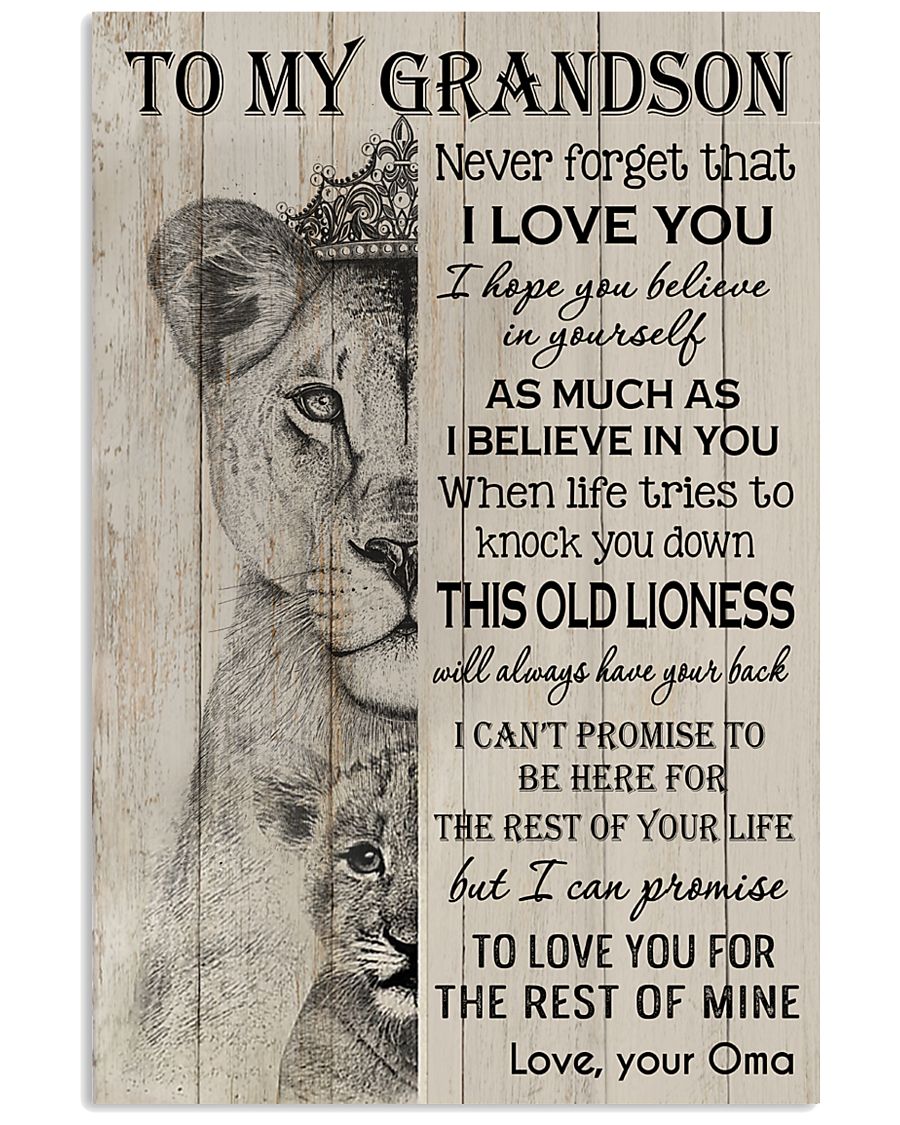 TO MY GRANDSON
Never forget that
I LOVE YOU
I hope you believe
in yourself
AS MUCH AS
I BELIEVE IN YOU
When life tries to
knock you down
THIS OLD LIONESS
will always have your back
I CAN'T PROMISE TO
BE HERE FOR
THE REST OF YOUR LIFE
but I can promise
TO LOVE YOU FOR
THE REST OF MINE
Love, your Oma